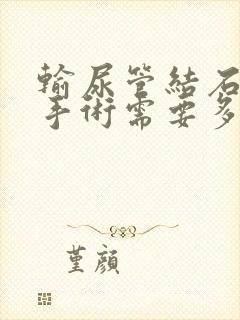 輸尿管結石
手術需要多
堇顏